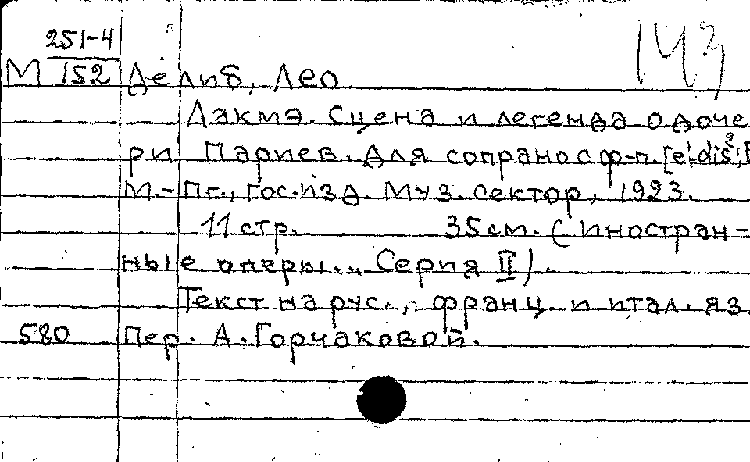 251-4
М 152 Делиб, Лео 143
Лакмэ. Сцена и легенда о доче-
ри Париев. Для сопрано с ф-п. [e¹-dis³;]
М.-Пг., Гос. изд. Муз. сектор, 1923.
11 стр. 35 см. (Иностран-
ные оперы... Серия II).
Текст на рус., франц. и итал. яз.
580 Пер. А. Горчаковой.